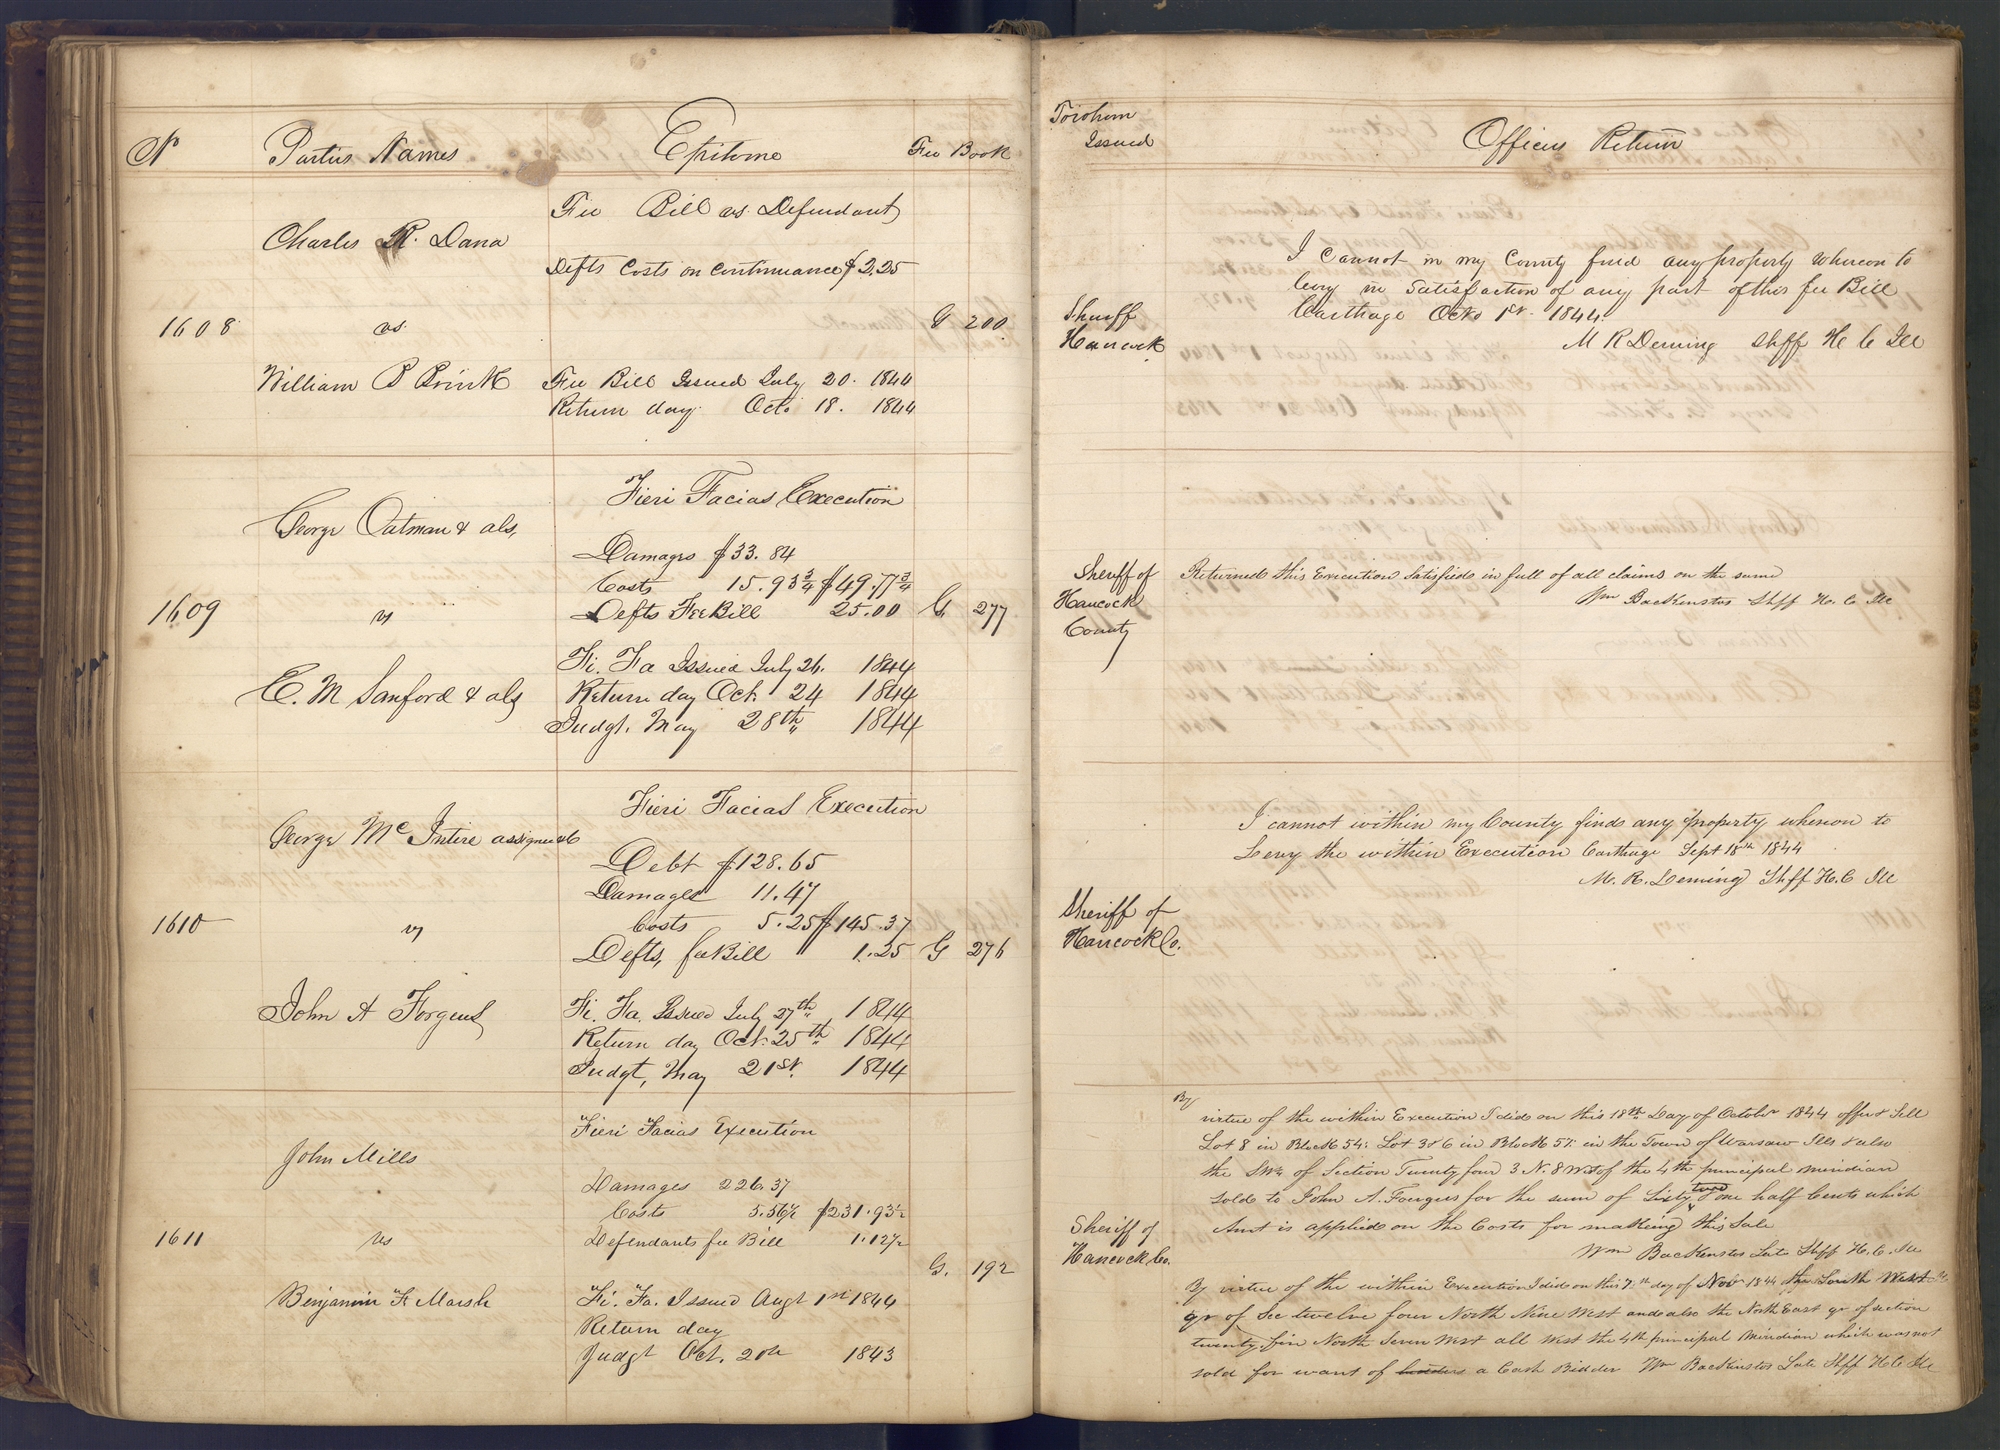 No
Parties Names
Epitome
Fee Book
Fee Bill vs. Defendant
Charles R. Dana
Defts Costs on Continuance $2.25
1608
vs.
G 200
William P Brink
Fee Bill Issued July 20. 1844
Return day. Octo 18. 1844
Fieri Facias Execution
George Oatman & als,
Damages $33.84
Costs 15.93¾ $49.77¾
1609
vs
Defts Fee Bill 25.00
G. 277
Fi. Fa Issued July 26. 1844
E. M Sanford & als
Return day Oct. 24 1844
Judgt. May 28th 1844
Fieri Facias Execution
George McIntire assignee &c
Debt $128.65
Damages 11.47
1610
vs
Costs 5.25 $145.37
Defts, fee Bill 1.25
G 276
John A Forgeus
Fi. Fa. Issued July 27th, 1844
Return day Oct. 25th 1844
Judgt, May 21st. 1844
Fieri Facias Execution
John Mills
Damages 226.37
Costs 5.56½ $231.93½
1611
vs
Defendants fee Bill 1.12½
G. 192
Benjamin F. Marsh
Fi. Fa. Issued Augt 1st 1844
Return day
Judgt Oct. 20th 1843
To whom
Issued
Officers Return
I cannot in my County find any property whereon to
levy in Satisfaction of any part of this fee Bill
Carthage Octo 1st. 1844.
Sheriff
Hancock
M R Deming Shff H C Ill
Sheriff of
Hancock
County
Returned this Execution Satisfied in full of all claims on the same
Wm Backenstos Shff H. C Ill
I cannot within my County find any property whereon to
Levy the within Execution Carthage Sept 18th 1844
M. R. Deming Shff H. C Ill
Sheriff of
Hancock Co.
By
virtue of the within Execution I did on this 18th Day of October 1844 offer & Sell
Lot 8 in Block 54: Lot 3 & 6 in Block 57: in the Town of Warsaw Ills & also
the SWr of Section Twenty four 3 N. 8 West of the 4th principal meridian
sold to John A. Forgeus for the sum of Sixty two & one half Cents which
Amt is applied on the Costs for making this Sale
Wm Backenstos Late Shff H. C. Ill
Sheriff of
Hancock, Co.
By virtue of the within Execution I did on this 7th day of Nov 1844 the South West
qr of Sec twelve four North Nine West and also the North East qr of section
twenty five North Seven West all West the 4th principal Meridian which was not
sold for want of bidders a Cash Bidder Wm Backenstos Late Shff H C Ill